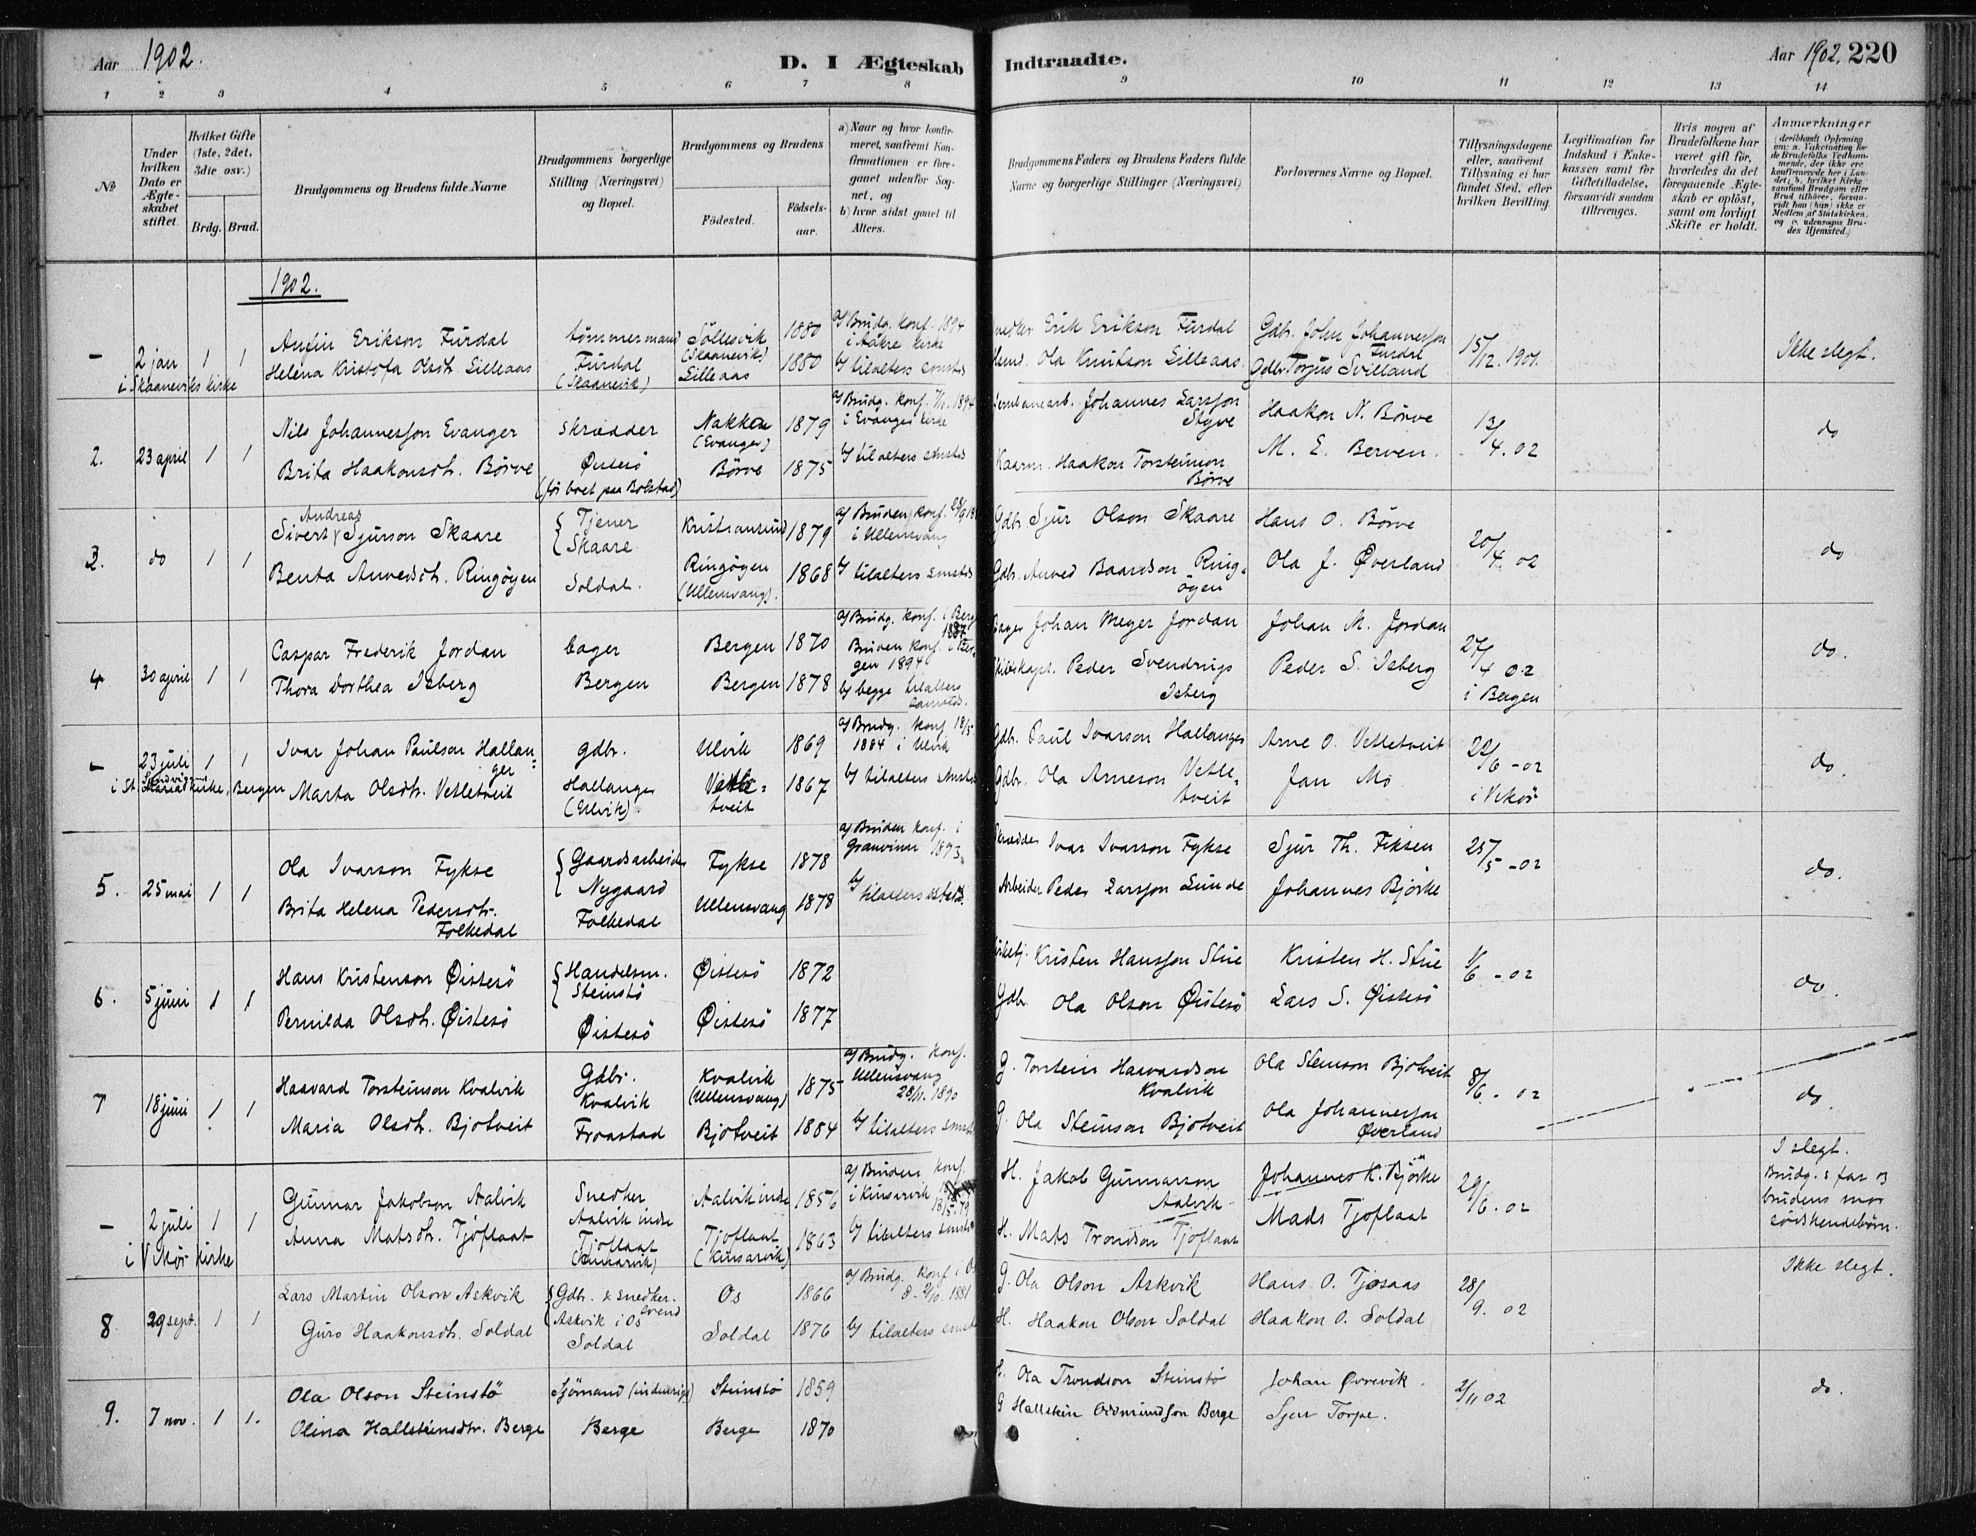 Aar 1902.
D. I Ægteskab Indtraadte.
Aar 1902. 220
1 2 3 4 5 6 7 8 9 10 11 12 13 14
№
Under hvilken Dato er Ægteskabet stiftet.
Hvilket Gifte (1ste, 2det, 3die osv.)
Brdg. Brud.
Brudgommens og Brudens fulde Navne
Brudgommens borgerlige Stilling (Næringsvei) og Bopæl.
Brudgommens og Brudens
Födested.
Födselsaar.
a) Naar og hvor konfirmeret, saafremt Konfirmationen er foregaaet udenfor Sognet, og
b) hvor sidst gaaet til Alters.
Brudgommens Faders og Brudens Faders fulde Navne og borgerlige Stillinger (Næringsvei)
Forlovernes Navne og Bopæl.
Tillysningsdagene eller, saafremt Tillysning ei har fundet Sted, efter hvilken Bevilling.
Legitimation for Indskud i Enkekassen samt for Giftetilladelse, forsaavidt saadan tiltrænges.
Hvis nogen af Brudefolkene har været gift før, hvorledes da det foregaaende Ægteskab er oplöst, samt om lovligt Skifte er holdt.
Anmærkninger
1902.
– 2 jan 1 1
i Skaaneviks kirke
Anfin Erikson Furdal
Helena Kristofa Olsdt. Lilleaas
tømmermand
Furdal
(Skaanevik)
Söllesvik
(Skaanevik)
Lilleaas
1880
1880
a) Brudg. konf. 1894
i Åkre kirke
b) tilalters smsteds
Erik Erikson Furdal
Ola Knutson Lilleaas
Gdbr. John Johannesson
Furdal
Gdbr Torjus Svilland
15/12. 1901.
Ikke slegt.
2. 23 april 1 1
Nils Johannesson Evanger
Brita Haakonsdt. Börve
skrædder
Øistesö
(før boet paa Bolstad)
Nakken
(Evanger)
Börve
1879
1875
i Evanger kirke
b) tilalters smsteds
Johannes Larsson
Styve
Kaarm. Haakon Torsteinson
Börve
Haakon N. Börve
M. E. Berven.
13/4. 02
do
3. do 1 1
Andreas
Sivert Sjurson Skaare
Benta Anvedsdt. Ringöyen
Tjener
Skaare
Soldal.
Kristiansund
Ringöyen
(Ullensvang).
1879
1868
a) Bruden konf.
i Ullensvang
b) tilalters smsteds
Gdbr Sjur Olson Skaare
Gdb. Anved Baardson Ringöyen
Hans O. Börve
Ola J. Øverland
20/4. 02
do
4 30 april 1 1
Caspar Frederik Jordan
Thora Dorthea Isberg
bager
Bergen
Bergen
Bergen
1870
1878
a) Brudg. konf. i Berg
1887
Bruden konf. i Bergen 1894
b) begge tilalters
samsteds.
Bager Johan Meyer Jordan
Peder Svendrup
Isberg
Johan M. Jordan
Peder S. Isberg
27/4 02
i Bergen
do.
– 23 juli 1 1
i St. kirke, Bergen
Ivar Johan Paulson Hallanger
Marta Olsdt. Vetletveit
gdbr.
Hallanger
(Ulvik).
Ulvik
Vetletveit
1869
1867
a) Brudg. konf. 18/5
1884 i Ulvik
b) tilalters smsteds
Gdb. Paul Ivarson Hallanger
Gdbr. Ola Arneson Vetletveit
Arne O. Vetletveit
Jan Mo
22/6 - 02
i Vikör
do.
5. 25 mai 1 1
Ola Ivarson Fykse
Brita Helena Pedersdt.
Folkedal
Gaardsarbeider
Nygaard
Folkedal
Fykse
Ullensvang
1878
1878
a) Bruden konf. i
Granvinn 1893.
b) tilalters
Skrædder Ivar Ivarson Fykse
Arbeider Peder Larsson Lunde
Sjur Th. Fiksen
Johannes Bjørke
25/5 - 02
do.
6. 5 juni 1 1
Hans Kristenson Øistesö
Pernilda Olsdt. Øistesö
Handelsm.
Steinstö
Øistesö
Øistesö
Øistesö
1872
1877
Kristen Hansson Stue
Gdb. Ola Olson Øistesö
Kristen H. Stue
Lars S. Øistesö
1/6 - 02
do.
7 18 juni 1 1
Haavard Torsteinson Kvalvik
Maria Olsdt. Bjotveit
Gdbr.
Kvalvik
Froastad
Kvalvik
(Ullensvang)
Bjotveit
1875
1884
a) Brudg. konf.
Ullensvang
1890
b) tilalters smsts
G. Torstein Haavardson
Kvalvik
G. Ola Steinson Bjotveit
Ola Steinson Bjotveit
Ola Johannesson
Øverland
8/6. - 02
do.
– 2 juli 1 1
i Vikör kirke
Gunnar Jakobson Aalvik
Anna Matsdt. Tjoflaat
Snedker
Aalvik indre
Tjoflaat
(Kinsarvik)
Aalvik indre
Tjoflaat
(Kinsarvik)
1856
1863
a) Bruden konf.
i Kinsarvik
18/5-79
b) tilalters smsteds
H. Jakob Gunnarson
Aalvik
H. Mats Trondson Tjoflaat
Johannes K. Bjørke
Mads Tjoflaat
29/6. 02
I slegt.
Brudg.s far og
brudens mor
södskendebörn.
8 29 sept. 1 1
Lars Martin Olson Askvik
Guro Haakonsdt. Soldal
Gdb. & snedker.
Askvik i Os
Soldal
Os
Soldal
1866
1876
a) Brudg. konf. i Os
1881
b) tilalters smsteds
G. Ola Olson Askvik
H. Haakon Olson Soldal
Hans O. Tjosaas
Haakon O. Soldal
28/9. 02
Ikke slegt.
9. 7 nov. 1 1.
Ola Olson Steinstö
Olina Hallsteinsdtr. Berge
Sjömand (indenrigs)
Berge
Steinstö
Berge
1859
1870
Ola Trondson Steinstö
G Hallstein Oddmundson Berge
Johan Øvrevik.
Sjur Torpe.
2/11 02
do.